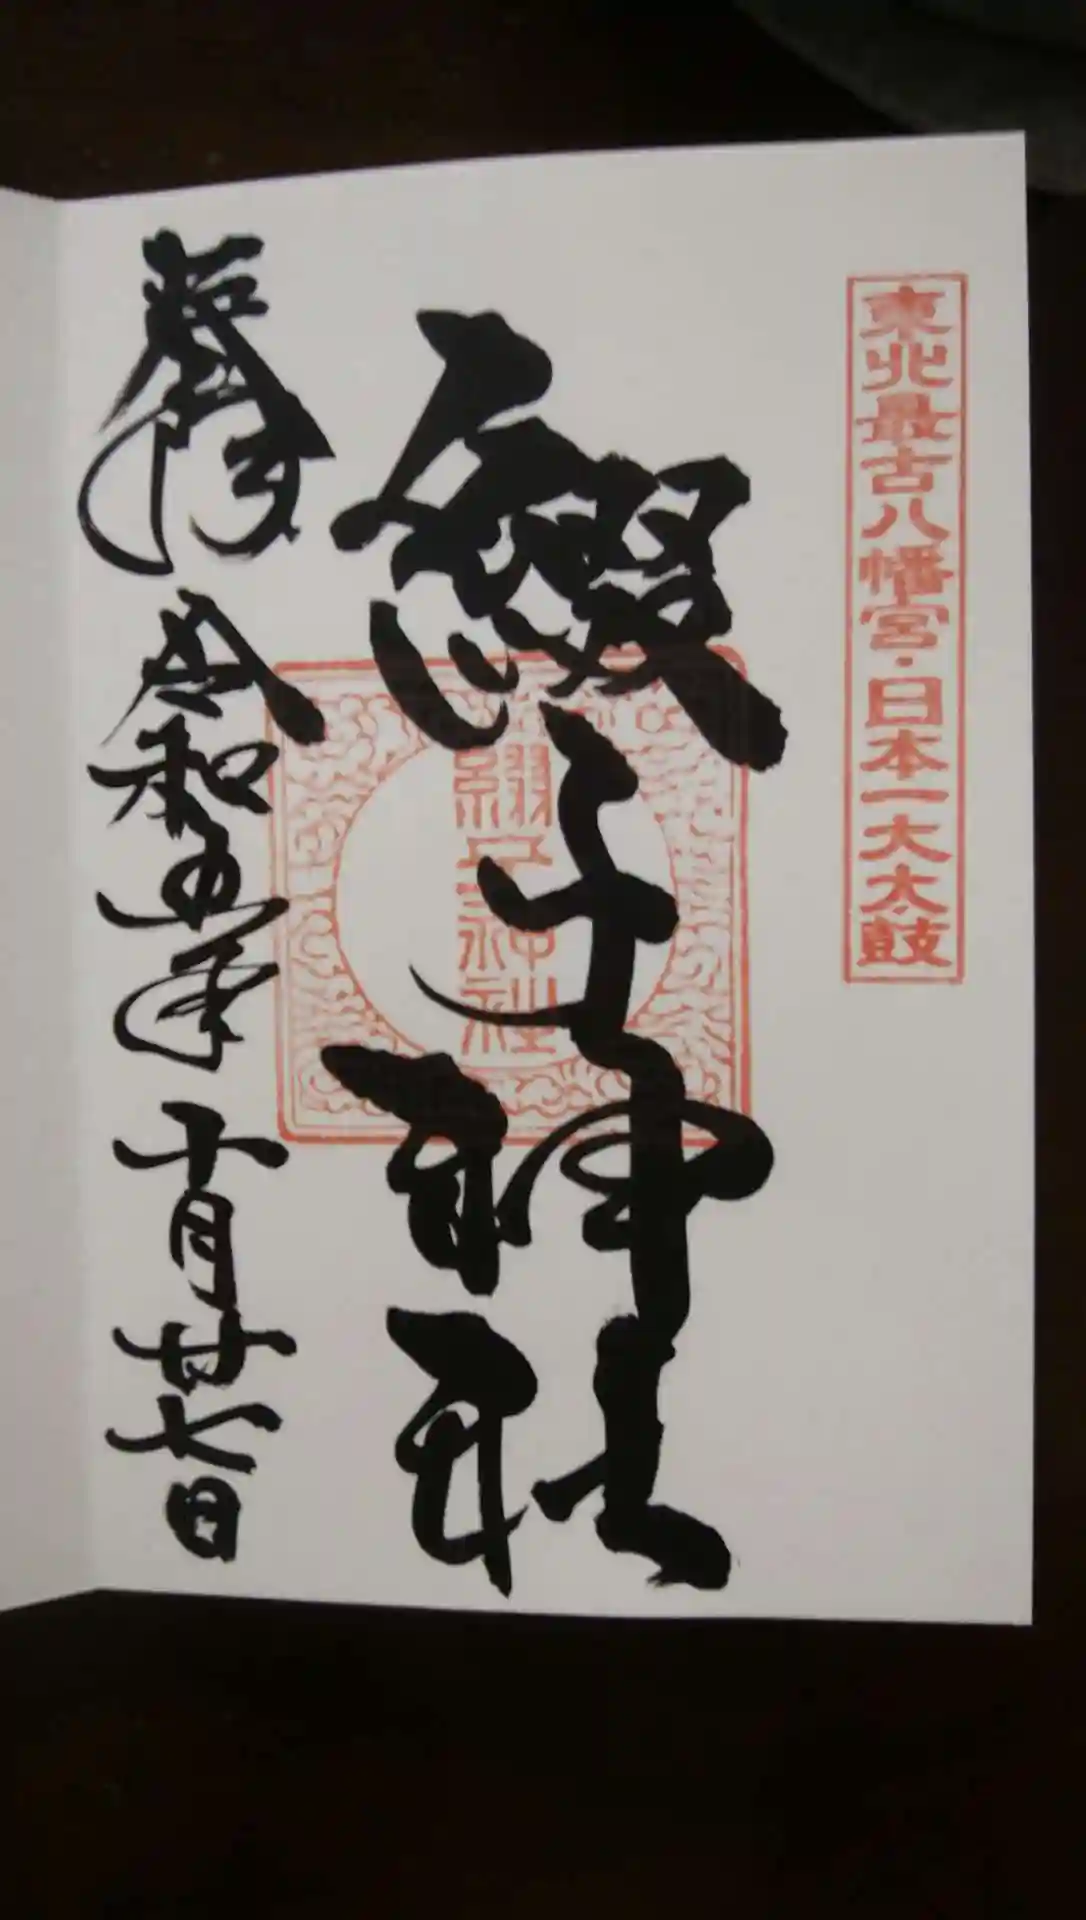 東北最古八幡宮・日本一大太鼓
綴子神社
綴子神社
奉拝 令和五年 十月廿七日